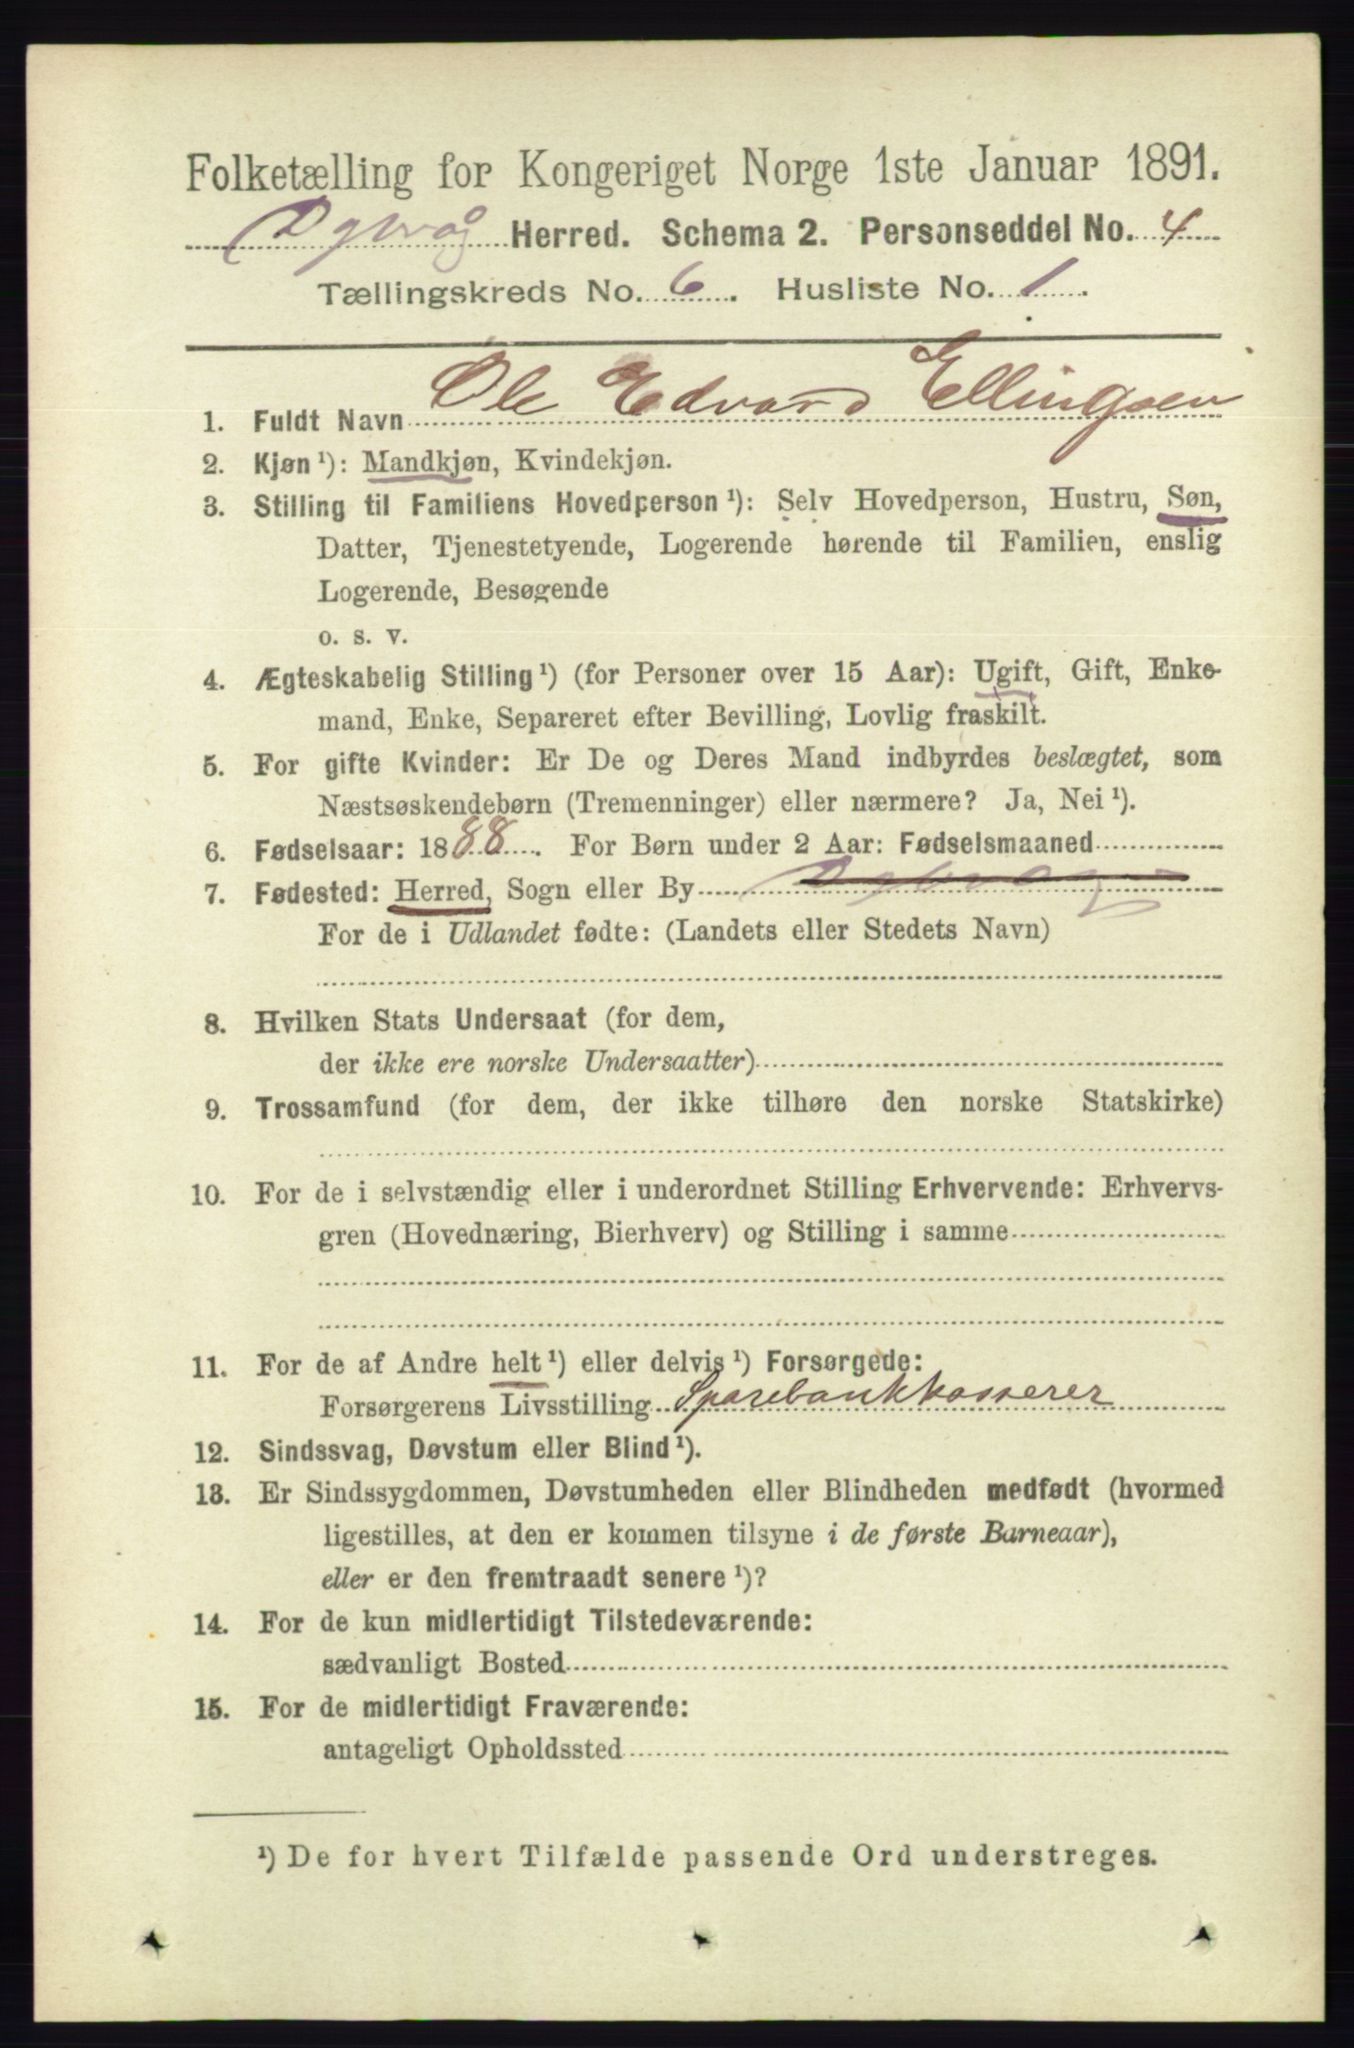 Folketælling for Kongeriget Norge 1ste Januar 1891.
Dybvåg Herred. Schema 2. Personseddel No. 4
Tællingskreds No. 6. Husliste No. 1.
1. Fuldt Navn Ole Edvard Ellingsen
2. Kjøn ¹): Mandkjøn, Kvindekjøn.
3. Stilling til Familiens Hovedperson ¹): Selv Hovedperson, Hustru, Søn,
Datter, Tjenestetyende, Logerende hørende til Familien, enslig
Logerende, Besøgende
o. s. v.
4. Ægteskabelig Stilling ¹) (for Personer over 15 Aar): Ugift, Gift, Enke-
mand, Enke, Separeret efter Bevilling, Lovlig fraskilt.
5. For gifte Kvinder: Er De og Deres Mand indbyrdes beslægtet, som
Næstsøskendebørn (Tremenninger) eller nærmere? Ja, Nei ¹).
6. Fødselsaar: 1888. For Børn under 2 Aar: Fødselsmaaned
7. Fødested: Herred, Sogn eller By Dybvaag
For de i Udlandet fødte: (Landets eller Stedets Navn)
8. Hvilken Stats Undersaat (for dem,
der ikke ere norske Undersaatter)
9. Trossamfund (for dem, der ikke tilhøre den norske Statskirke)
10. For de i selvstændig eller i underordnet Stilling Erhvervende: Erhvervs-
gren (Hovednæring, Bierhverv) og Stilling i samme
11. For de af Andre helt ¹) eller delvis ¹) Forsørgede:
Forsørgerens Livsstilling Sparebankkasserer
12. Sindssvag, Døvstum eller Blind ¹).
13. Er Sindssygdommen, Døvstumheden eller Blindheden medfødt (hvormed
ligestilles, at den er kommen tilsyne i de første Barneaar),
eller er den fremtraadt senere ¹)?
14. For de kun midlertidigt Tilstedeværende:
sædvanligt Bosted
15. For de midlertidigt Fraværende:
antageligt Opholdssted
¹) De for hvert Tilfælde passende Ord understreges.